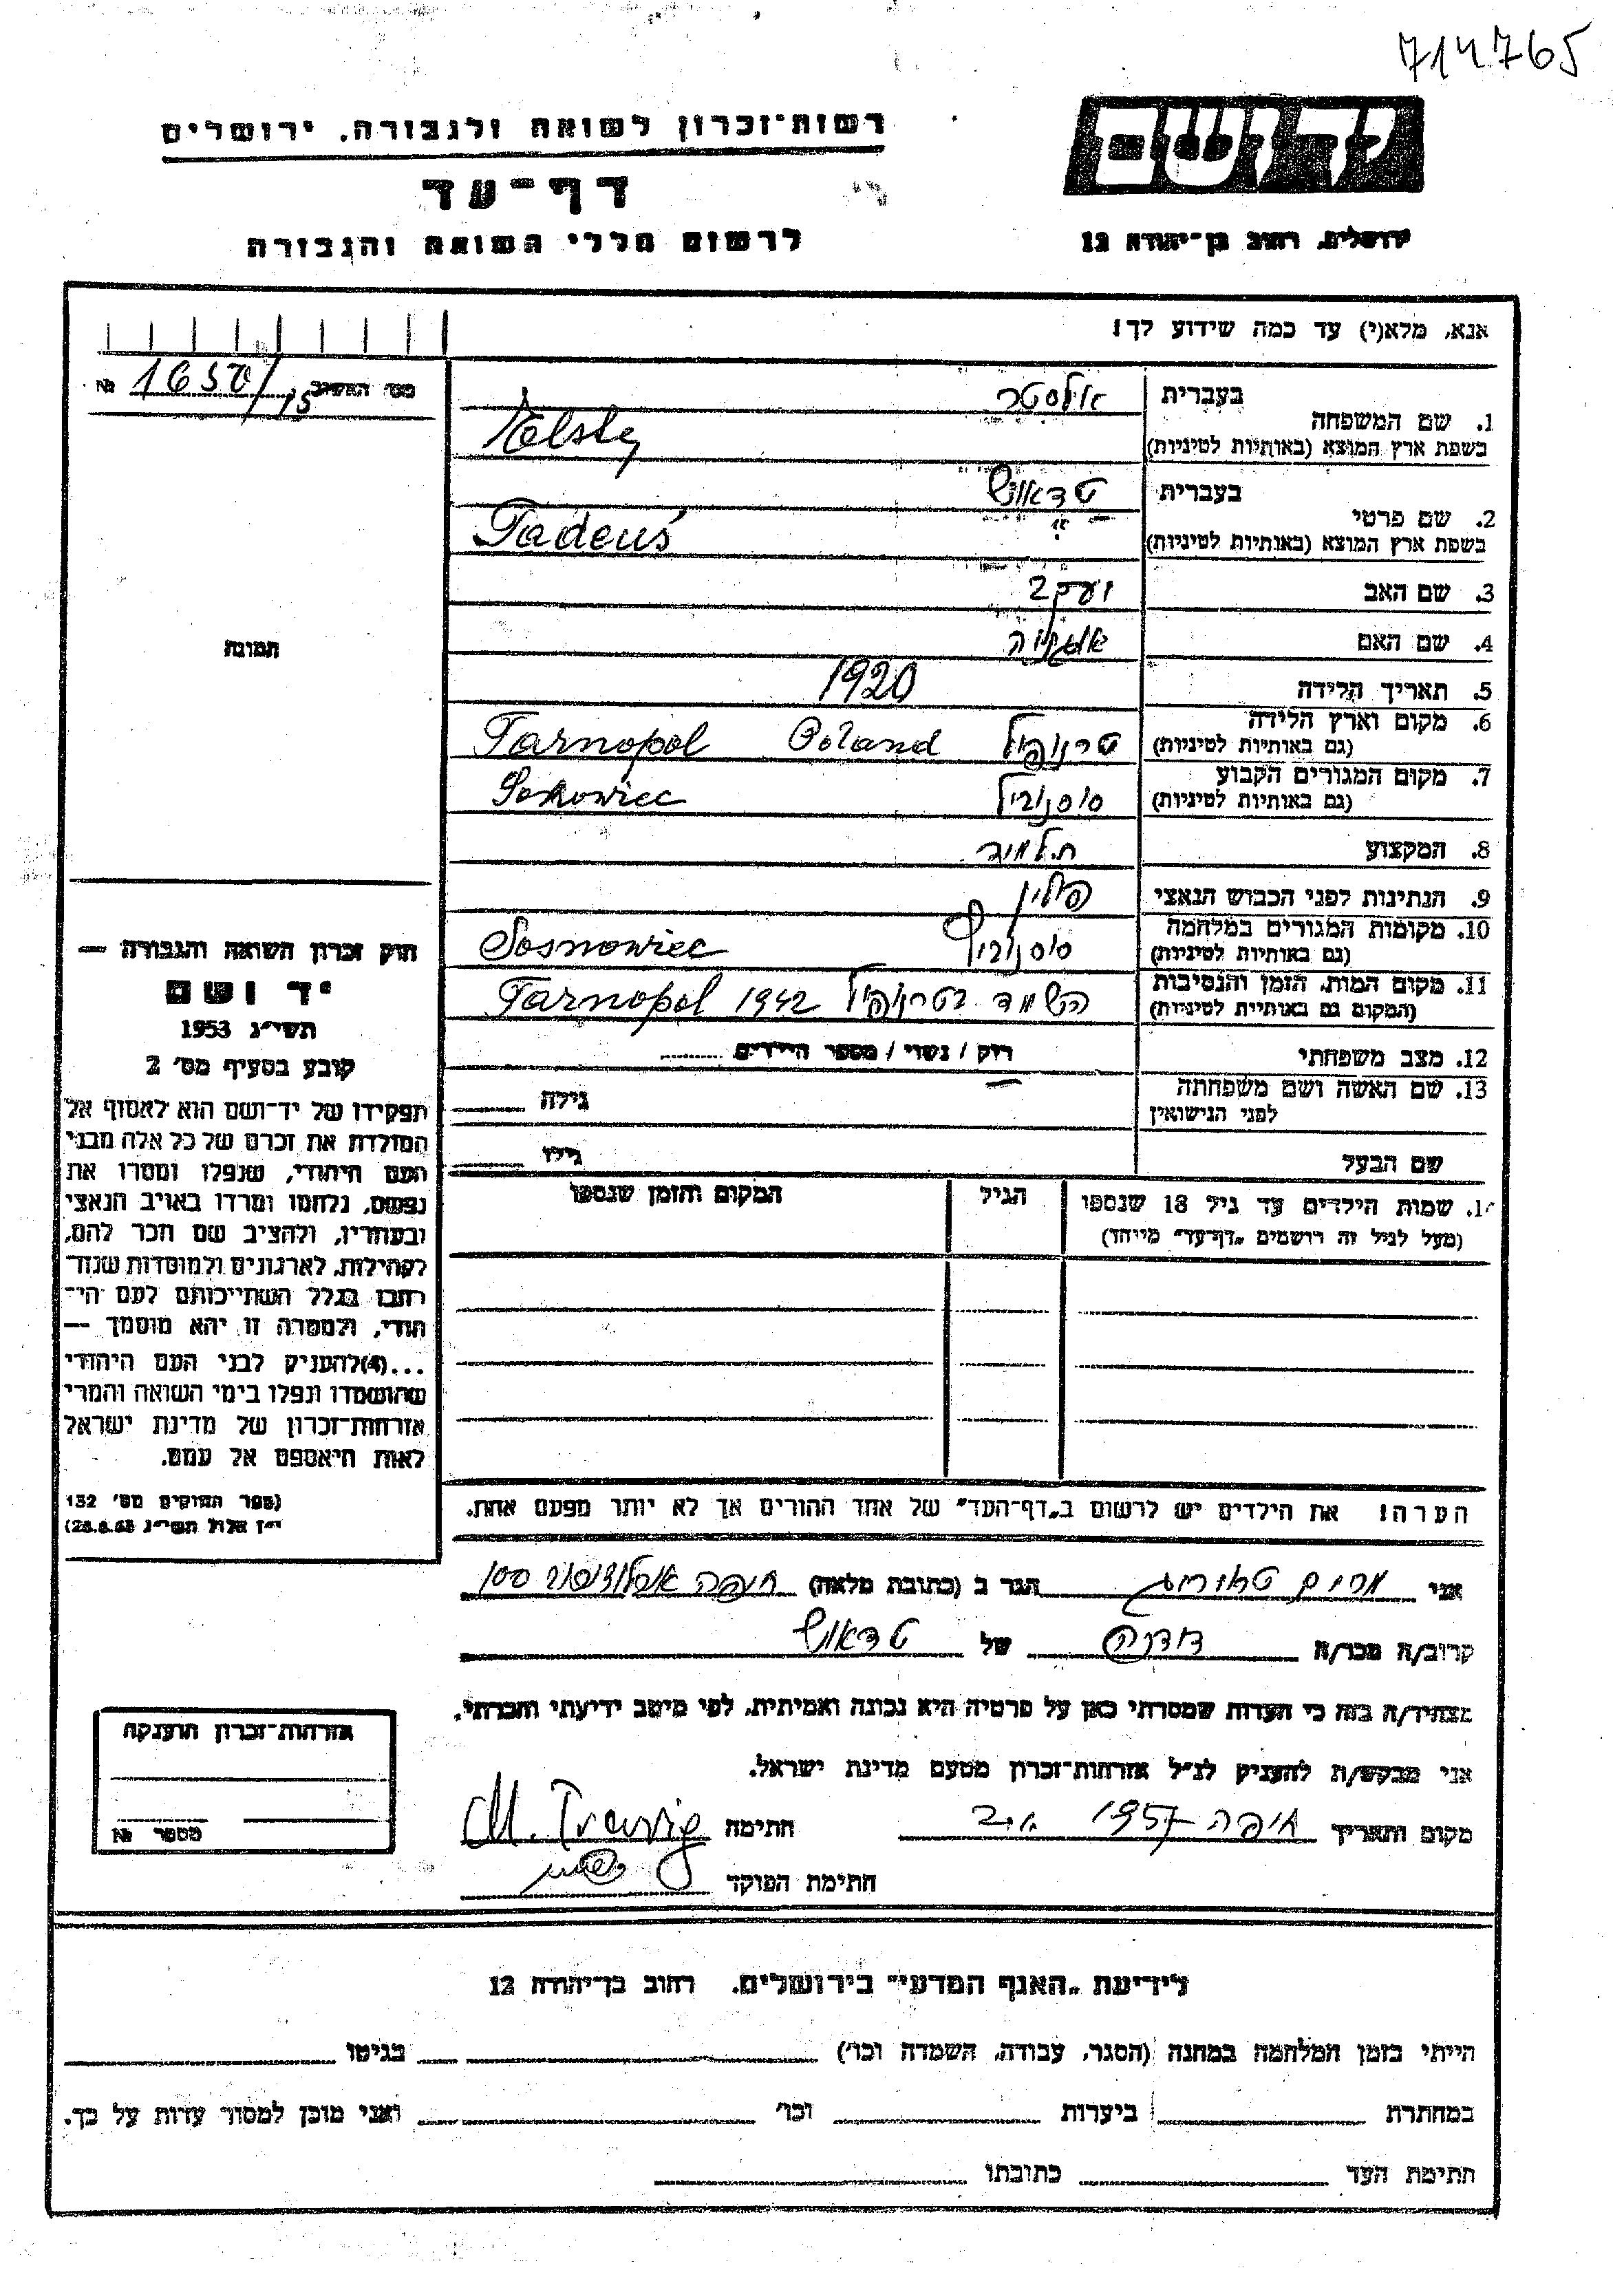 714765
יד ושם
ירושלים, רחוב בן־יהודה 12
רשות־זכרון לשואה ולגבורה, ירושלים
דף־עד
לרשום חללי השואה והגבורה
אנא, מלא(י) עד כמה שידוע לך!
1. שם המשפחה
בעברית
בשפת ארץ המוצא (באותיות לטיניות)
2. שם פרטי
בעברית טדאוש
בשפת ארץ המוצא (באותיות לטיניות) Tadeuś
3. שם האב יעקב
4. שם האם
5. תאריך הלידה 1920
6. מקום וארץ הלידה
(גם באותיות לטיניות) טרנופול Poland Tarnopol
7. מקום המגורים הקבוע
(גם באותיות לטיניות)
8. המקצוע תלמיד
9. הנתינות לפני הכבוש הנאצי פולין
10. מקומות המגורים במלחמה
(גם באותיות לטיניות) Sosnowiec
11. מקום המות, הזמן והנסיבות
(המקום גם באותיות לטיניות) הושמד בטרנופול 1942 Tarnopol
12. מצב משפחתי רוק / נשוי / מספר הילדים
13. שם האשה ושם משפחתה
לפני הנישואין — גילה
שם הבעל גילו
14. שמות הילדים עד גיל 18 שנספו
(מעל לגיל זה רושמים „דף־עד” מייחד)
הגיל
המקום והזמן שנספו
הערה! את הילדים יש לרשום ב„דף־העד” של אחד ההורים אך לא יותר מפעם אחת.
מס׳ האשוב №
תמונה
חוק זכרון השואה והגבורה —
יד ושם
תשי״ג 1953
קובע בסעיף מס׳ 2
תפקידו של יד־ושם הוא לאסוף אל
המולדת את זכרם של כל אלה מבני
העם היהודי, שנפלו ומסרו את
נפשם, נלחמו ומרדו באויב הנאצי
ובעוזריו, ולהציב שם וזכר להם,
לקהילות, לארגונים ולמוסדות שנח־
רבו בגלל השתייכותם לעם הי־
הודי, ולמטרה זו יהא מוסמך —
...(4)להעניק לבני העם היהודי
שהושמדו ונפלו בימי השואה והמרי
אזרחות־זכרון של מדינת ישראל
לאות היאספם אל עמם.
(ספר החוקים מס׳ 132
י״ז אלול תשי״ג 28.8.53)
אני מרים הגר ב (כתובת מלאה) חיפה
קרוב/ה מכר/ה דודנה של טדאוש
מצהיר/ה בזה כי העדות שמסרתי כאן על פרטיה היא נכונה ואמיתית, לפי מיטב ידיעתי והכרתי.
אני מבקש/ת להעניק לנ״ל אזרחות־זכרון מטעם מדינת ישראל.
מקום ותאריך חיפה 1957 חתימה
חתימת הפוקד
אזרחות־זכרון הוענקה
מספר №
לידיעת „האגף המדעי” בירושלים, רחוב בן־יהודה 12
הייתי בזמן המלחמה במחנה (הסגר, עבודה, השמדה וכו׳) בגיטו
במחתרת ביערות וכו׳ ואני מוכן למסור עדות על כך.
חתימת העד כתובתו